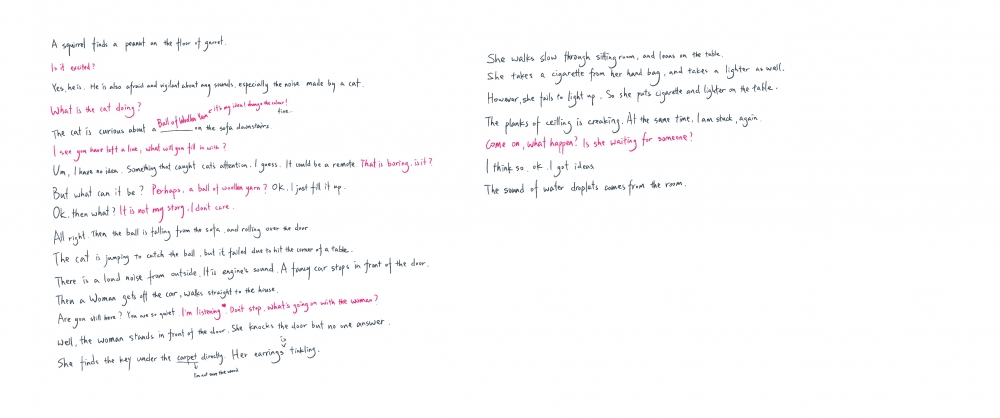 A squirrel finds a peanut on the floor of garret.
Is it excited?
Yes, he is. He is also afraid and vigilant about any sounds, especially the noise made by a cat.
What is the cat doing?
Ball of Woollen Yarn
it's my idea! change the colour!
fine.
The cat is curious about a ______ on the sofa downstairs.
I see you have left a line, what will you fill in with?
Um, I have no idea. Something that caught cats attention, I guess. It could be a remote. That is boring, is it?
But what can it be? Perhaps, a ball of woollen yarn? OK. I just fill it up.
Ok, then what? It is not my story. I dont care.
All right. Then the ball is falling from the sofa, and rolling over the door
The cat is jumping to catch the ball, but it failed due to hit the corner of a table.
There is a loud noise from outside. It is engine's sound. A fancy car stops in front of the door.
Then a Woman gets off the car, walks straight to the house.
Are you still here? You are so quiet. I'm listening. Don't stop, what's going on with the woman?
Well, the woman stands in front of the door. She knocks the door but no one answer.
is
She finds the key under the carpet directly. Her earrings tinkling.
I'm not sure the word
She walks slow through sitting room, and leans on the table.
She takes a cigarette from her hand bag, and takes a lighter as well.
However, she fails to light up. So she puts cigarette and lighter on the table.
The planks of ceilling is creaking. At the same time, I am stuck, again.
Come on, what happen? Is she waiting for someone?
I think so. ok. I got ideas
The sound of water droplets comes from the room.